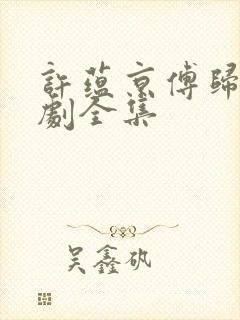 許蘊京傅歸
劇全集
吳鑫矾